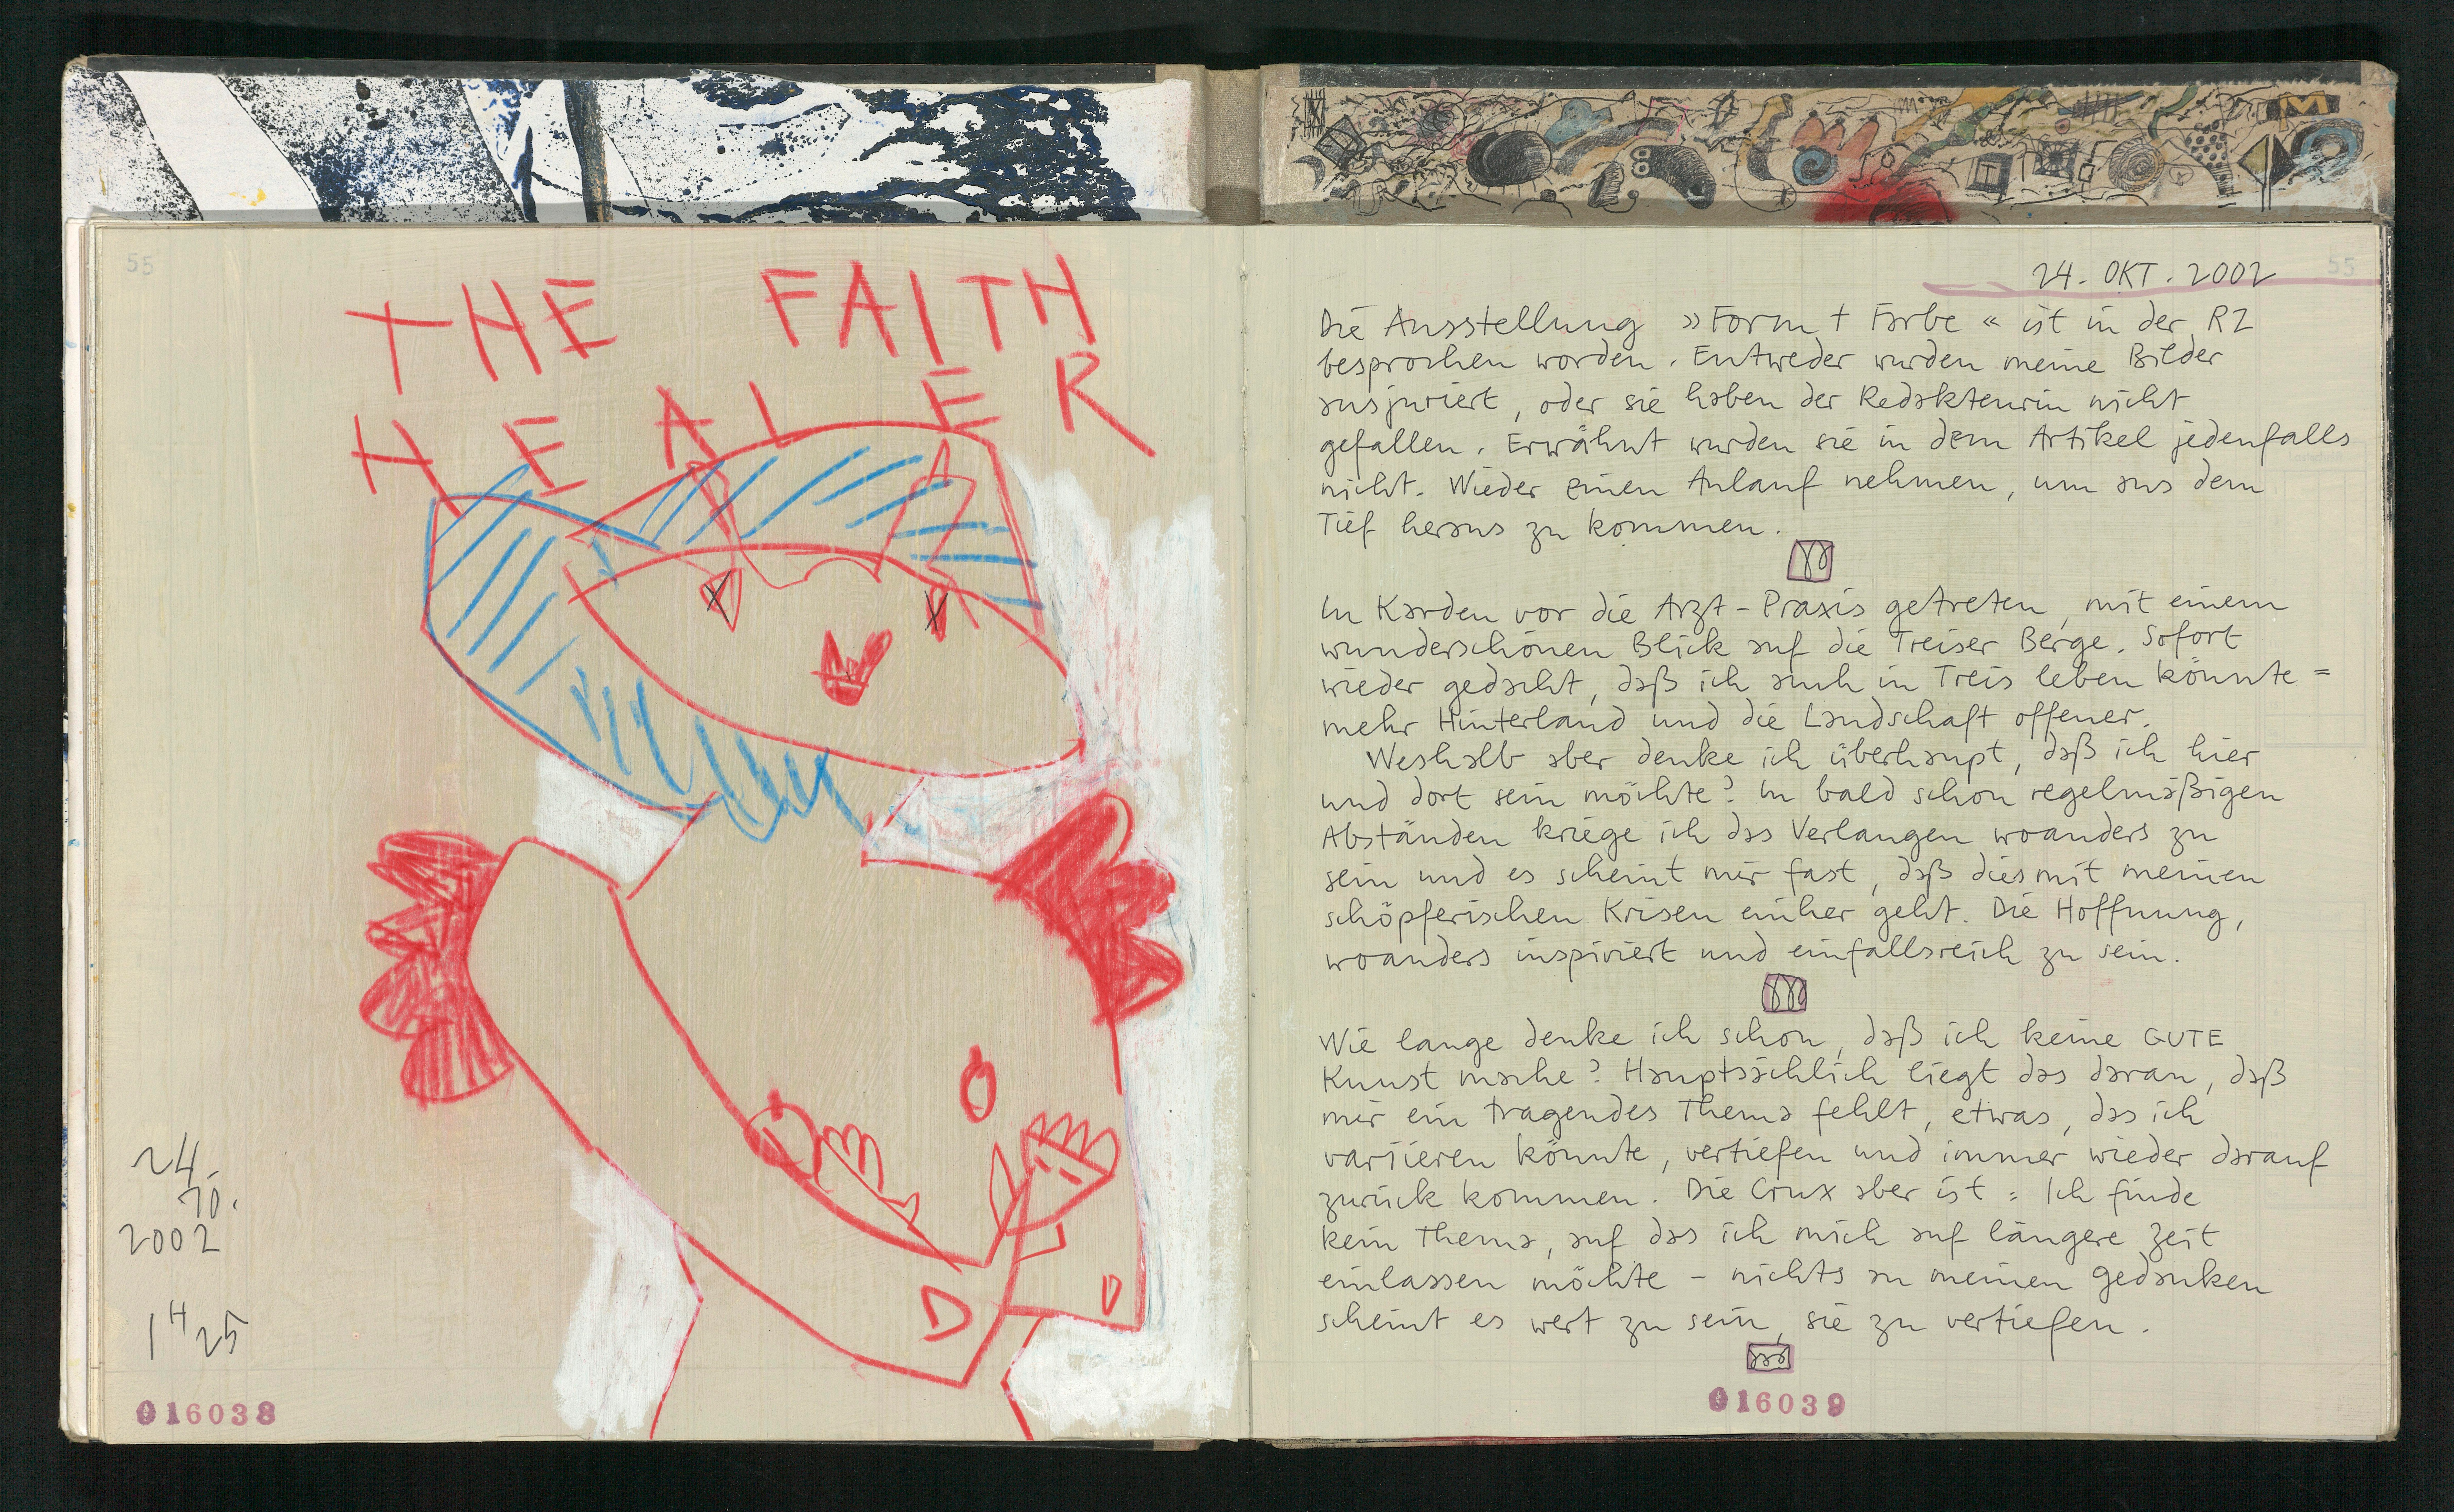 55
THE FAITH
HEALER
24.
10.
2002
1H25
016038
55
24. OKT. 2002
Die Ausstellung »Form + Farbe« ist in der RZ
besprochen worden. Entweder wurden meine Bilder
ausjuriert, oder sie haben der Redakteurin nicht
gefallen. Erwähnt wurden sie in dem Artikel jedenfalls
nicht. Wieder einen Anlauf nehmen, um aus dem
Tief heraus zu kommen.
In Karden vor die Arzt-Praxis getreten, mit einem
wunderschönen Blick auf die Treiser Berge. Sofort
wieder gedacht, daß ich auch in Treis leben könnte =
mehr Hinterland und die Landschaft offener.
Weshalb aber denke ich überhaupt, daß ich hier
und dort sein möchte? In bald schon regelmäßigen
Abständen kriege ich das Verlangen woanders zu
sein und es scheint mir fast, daß dies mit meinen
schöpferischen Krisen einher geht. Die Hoffnung,
woanders inspiriert und einfallsreich zu sein.
Wie lange denke ich schon, daß ich keine GUTE
Kunst mache? Hauptsächlich liegt das daran, daß
mir ein tragendes Thema fehlt, etwas, das ich
variieren könnte, vertiefen und immer wieder darauf
zurück kommen. Die Crux aber ist: Ich finde
kein Thema, auf das ich mich auf längere Zeit
einlassen möchte - nichts an meinen Gedanken
scheint es wert zu sein, sie zu vertiefen.
016039